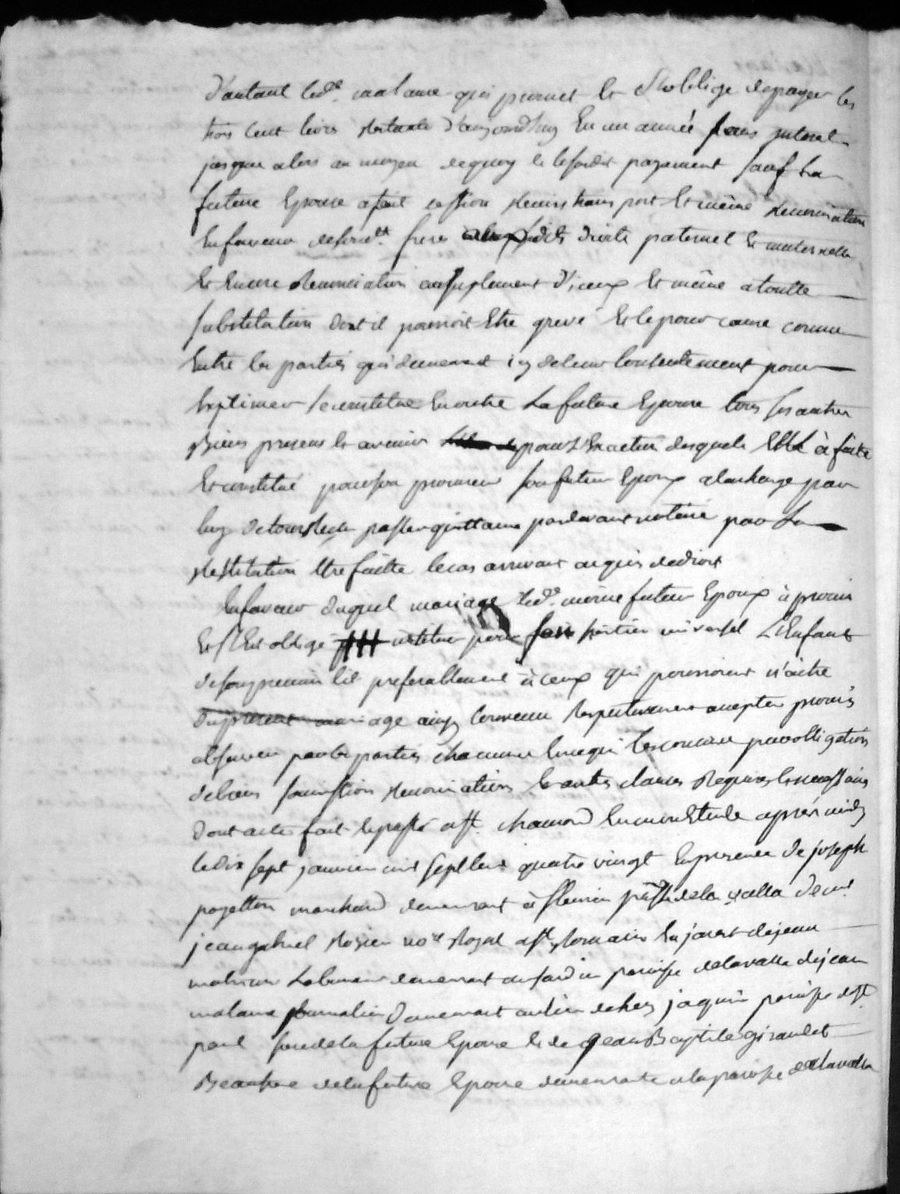 d'autant led. malaure qui promet et s'oblige de payer les
trois cent livres restante d'aujourdhuy en un année sans interet
jusque alors au moyen de quoy et le susdit payement sauf la
future Epouse a fait cession remis transport et même renonciation
en faveur de sond. frere desdits droits paternel et maternelle
et encore renonciation au suplement d'iceux et même a toutte
substitution dont il pourroit etre grevé et le pour cause connue
entre les parties qui demeurent icy de leur consentement pour
exprimer se constitue en outre la future Epouse tous ses autres
Biens present et avenir pour l'exaction desquels Elle à faite
et constitué pour son procureur son futur Epoux a la charge par
luy de tous recu passer quittance pardevant notaire pour la
restitution etre faitte le cas arrivant a qui de droit
En faveur duquel mariage led. futur Epoux à promis
et s'est obligé instituer pour son heritier universel L'Enfant
de son premier lit preferablement à ceux qui pourroient n'aitre
du present mariage ainsy convenu respectivement accepter promis
observer par les parties chacune en ce qui les concerne par obligation
de biens soumission renonciation et autres clauses requises et necessaires
Dont acte fait et passé a st. chamond en mon Etude après midy
le dix sept janvier mil sept cent quatre vingt En presence de joseph
pazellon marchand demeurant à fleurieu psse de la valla de me
jean gabriel rosier no.re Royal a st romain en jarest de jean
matricon Laboureur demeurant au jardin paroisse de lavalla de jean
malaure journalier demeurant au lieu de chez jaquin paroisse de st.
paul frere de la future Epouse et de jean Baptiste giraudet
Beaufrere de la future Epouse demeurant a la paroisse de lavalla